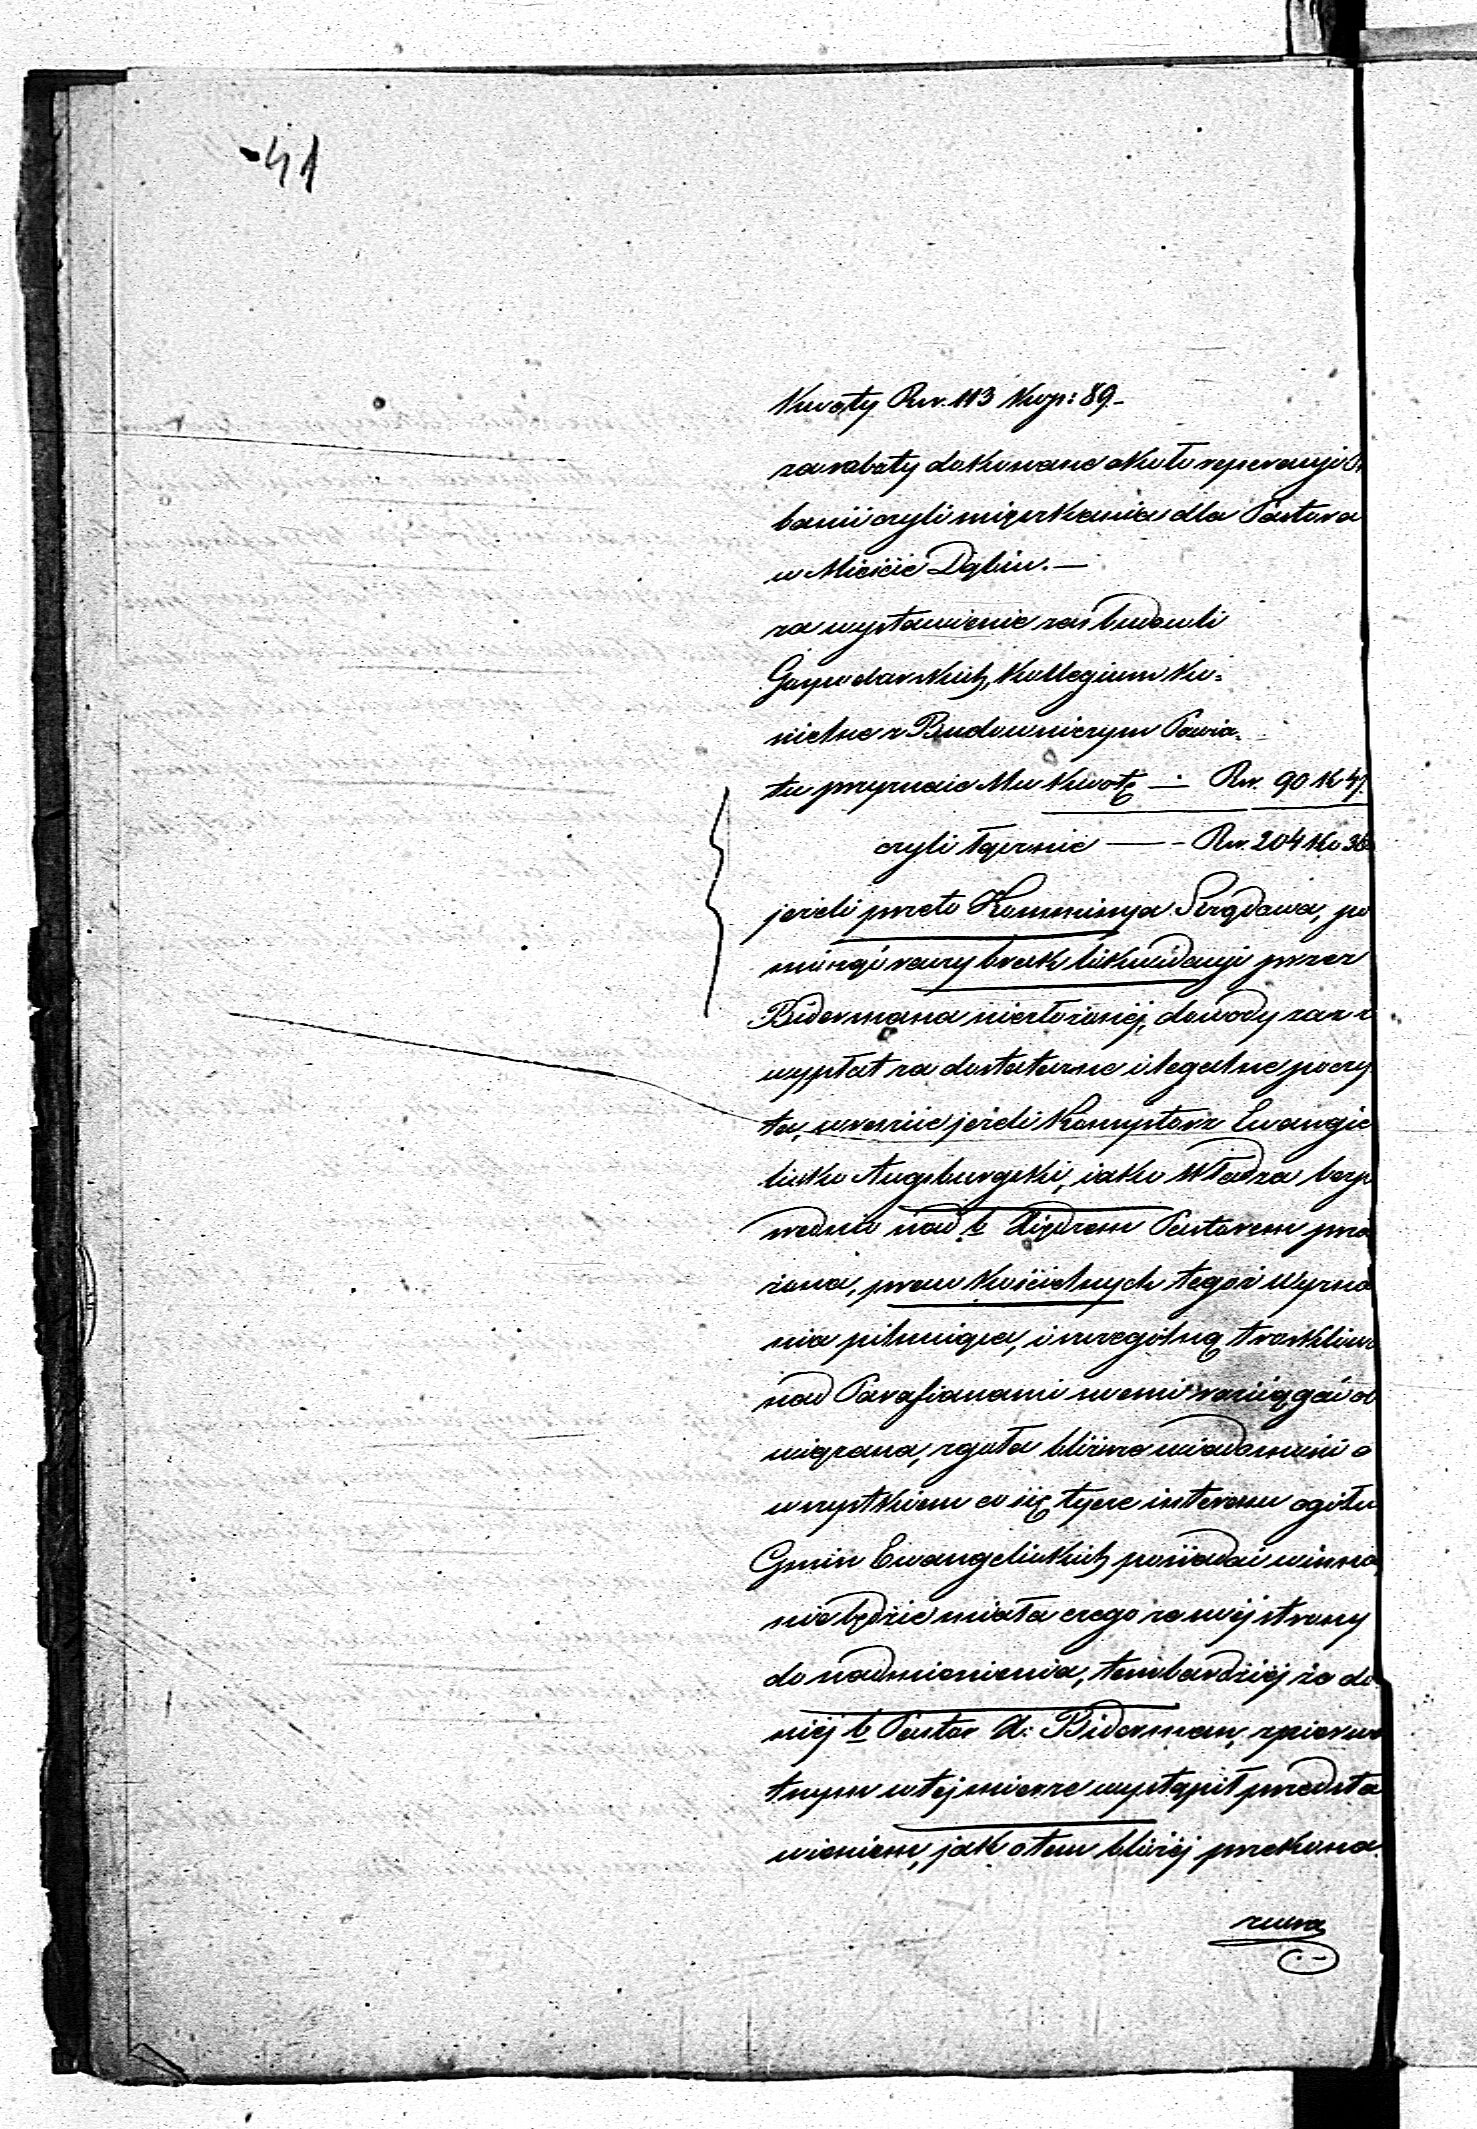 41
Kwoty Rsr. 113 Kop: 89.-
za roboty dokonane około reperacji
banii czyli mięszkania dla Pastora
w Mieście Dąbiu. —
za wystawienie zaś budowli
Gospodarskich, Kollegium Ko-
ścielne z Budowniczym Powia-
tu przyznaie Mu kwotę — Rsr. 90 K 47.
czyli łącznie — Rsr. 204 Ko 36
jeżeli przeto Kommissya Rządowa, po
minąwszy brak likwidacyi przez
Bidermana niezłożonej, dowody zaś z
wypłat za dostateczne i legalne poczy
ta, wreszcie jeżeli Konsystorz Ewangie
licko Augsburgski, iako Władza bezp
średnio nad b Xiędzem Pastorem prze
żona, praw Kościelnych tegoż Wyzna
nia pilnuiąca, i szczególną troskliwo
nad Parafianami swemi rozciągać o
wiązana, zgoła bliższe wiadomości o
wszystkiem co się tycze interessu ogółu
Gmin Ewangelickich posiadać winna,
nie będzie miała czego ze swéj strony
do nadmienienia, tembardziéj że do
niéj b Pastor X: Biderman, z pierwo
tnym w téj mierze wystąpił przedsta
wieniem, jak o tem bliżéj przekona